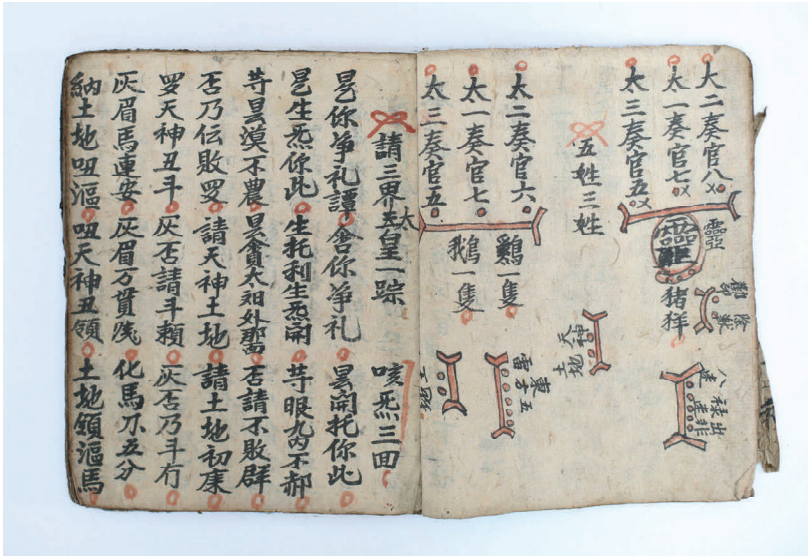 大二奏官八
太一奏官七
太三奏官五
靈
靈
猪羊
五姓三姓
太二奏官六
太一奏官七
太三奏官五
鷄一隻
鵝一隻
東方五
雷
請三界太皇一踪 咳炁三囬
你净礼譚 舍你净礼 開托你此
生炁你此 生托利生炁開 眼九内不郝
漠不農 貪太祖外 否請不敗群
否乃伝敗罗 請天神土地 請土地初康
罗天神丑斗 灰否請斗賴 灰否乃斗冇
灰眉馬連安 灰眉万貫 化馬不五分
納土地呾漚 呾天神丑領 土地領漚馬